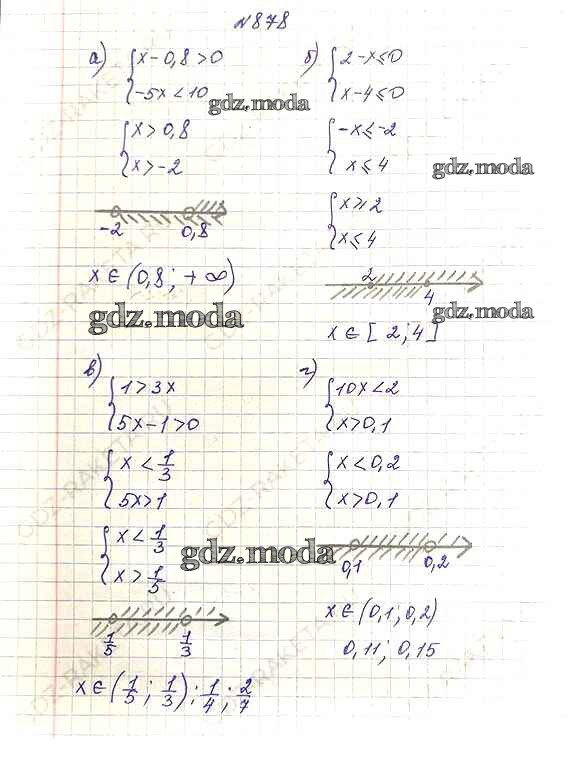 №878
а) { x - 0,8 > 0
-5x < 10
{ x > 0,8
x > -2
-2 0,8
x ∈ (0,8; +∞)
б) { 2 - x ≤ 0
x - 4 ≤ 0
{ -x ≤ -2
x ≤ 4
{ x ≥ 2
x ≤ 4
2 4
x ∈ [2; 4]
в) { 1 > 3x
5x - 1 > 0
{ x < 1/3
5x > 1
{ x < 1/3
x > 1/5
1/5 1/3
x ∈ (1/5; 1/3) : 1/4; 2/7
г) { 10x < 2
x > 0,1
{ x < 0,2
x > 0,1
0,1 0,2
x ∈ (0,1; 0,2)
0,11; 0,15
gdz.moda
gdz.moda
gdz.moda
gdz.moda
gdz.moda